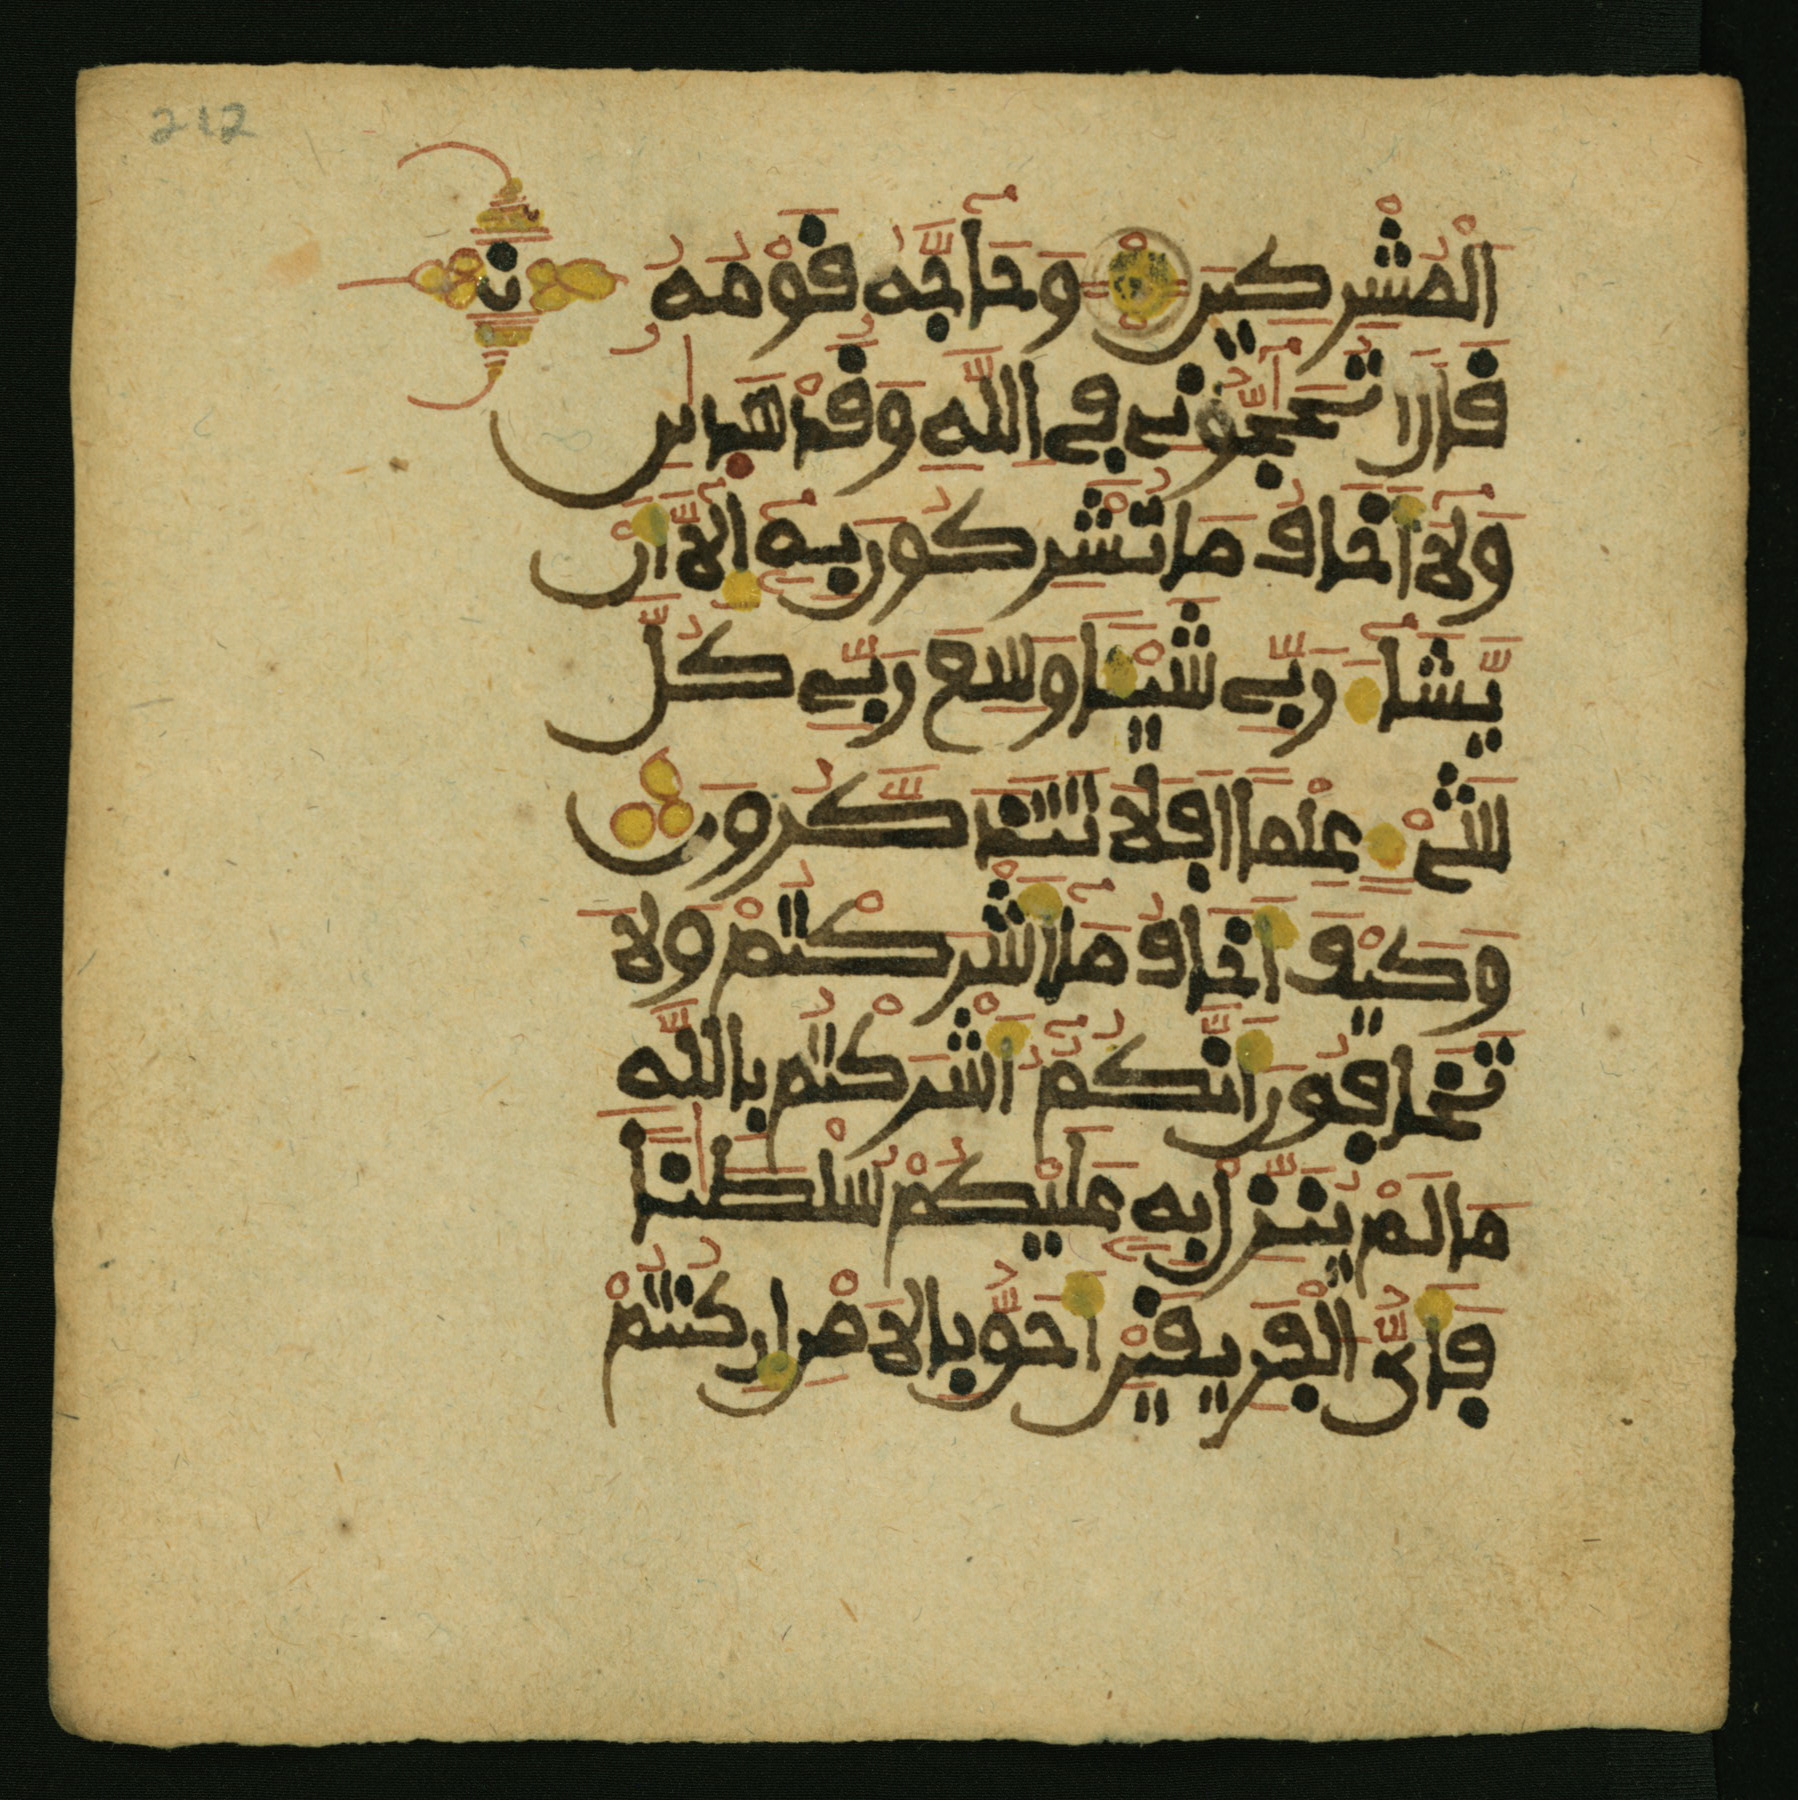 212
الْمُشْرِكِينَ وَحَآجَّهُۥ قَوْمُهُۥ ن
قَالَ أَتُحَٰٓجُّوٓنِي فِي اللَّهِ وَقَدْ هَدَىٰنِ
وَلَآ أَخَافُ مَا تُشْرِكُونَ بِهِۦٓ إِلَّآ أَنْ
يَّشَآءَ رَبِّي شَيْـًٔا وَسِعَ رَبِّي كُلَّ
شَيْءٍ عِلْمًا أَفَلَا تَتَذَكَّرُونَ
وَكَيْفَ أَخَافُ مَآ أَشْرَكْتُمْ وَلَا
تَخَافُونَ أَنَّكُمُۥٓ أَشْرَكْتُم بِاللَّهِ
مَا لَمْ يُنَزِّلْ بِهِۦ عَلَيْكُمْ سُلْطَٰنًا
فَأَيُّ الْفَرِيقَيْنِ أَحَقُّ بِالَامْنِ إِن كُنتُمْ